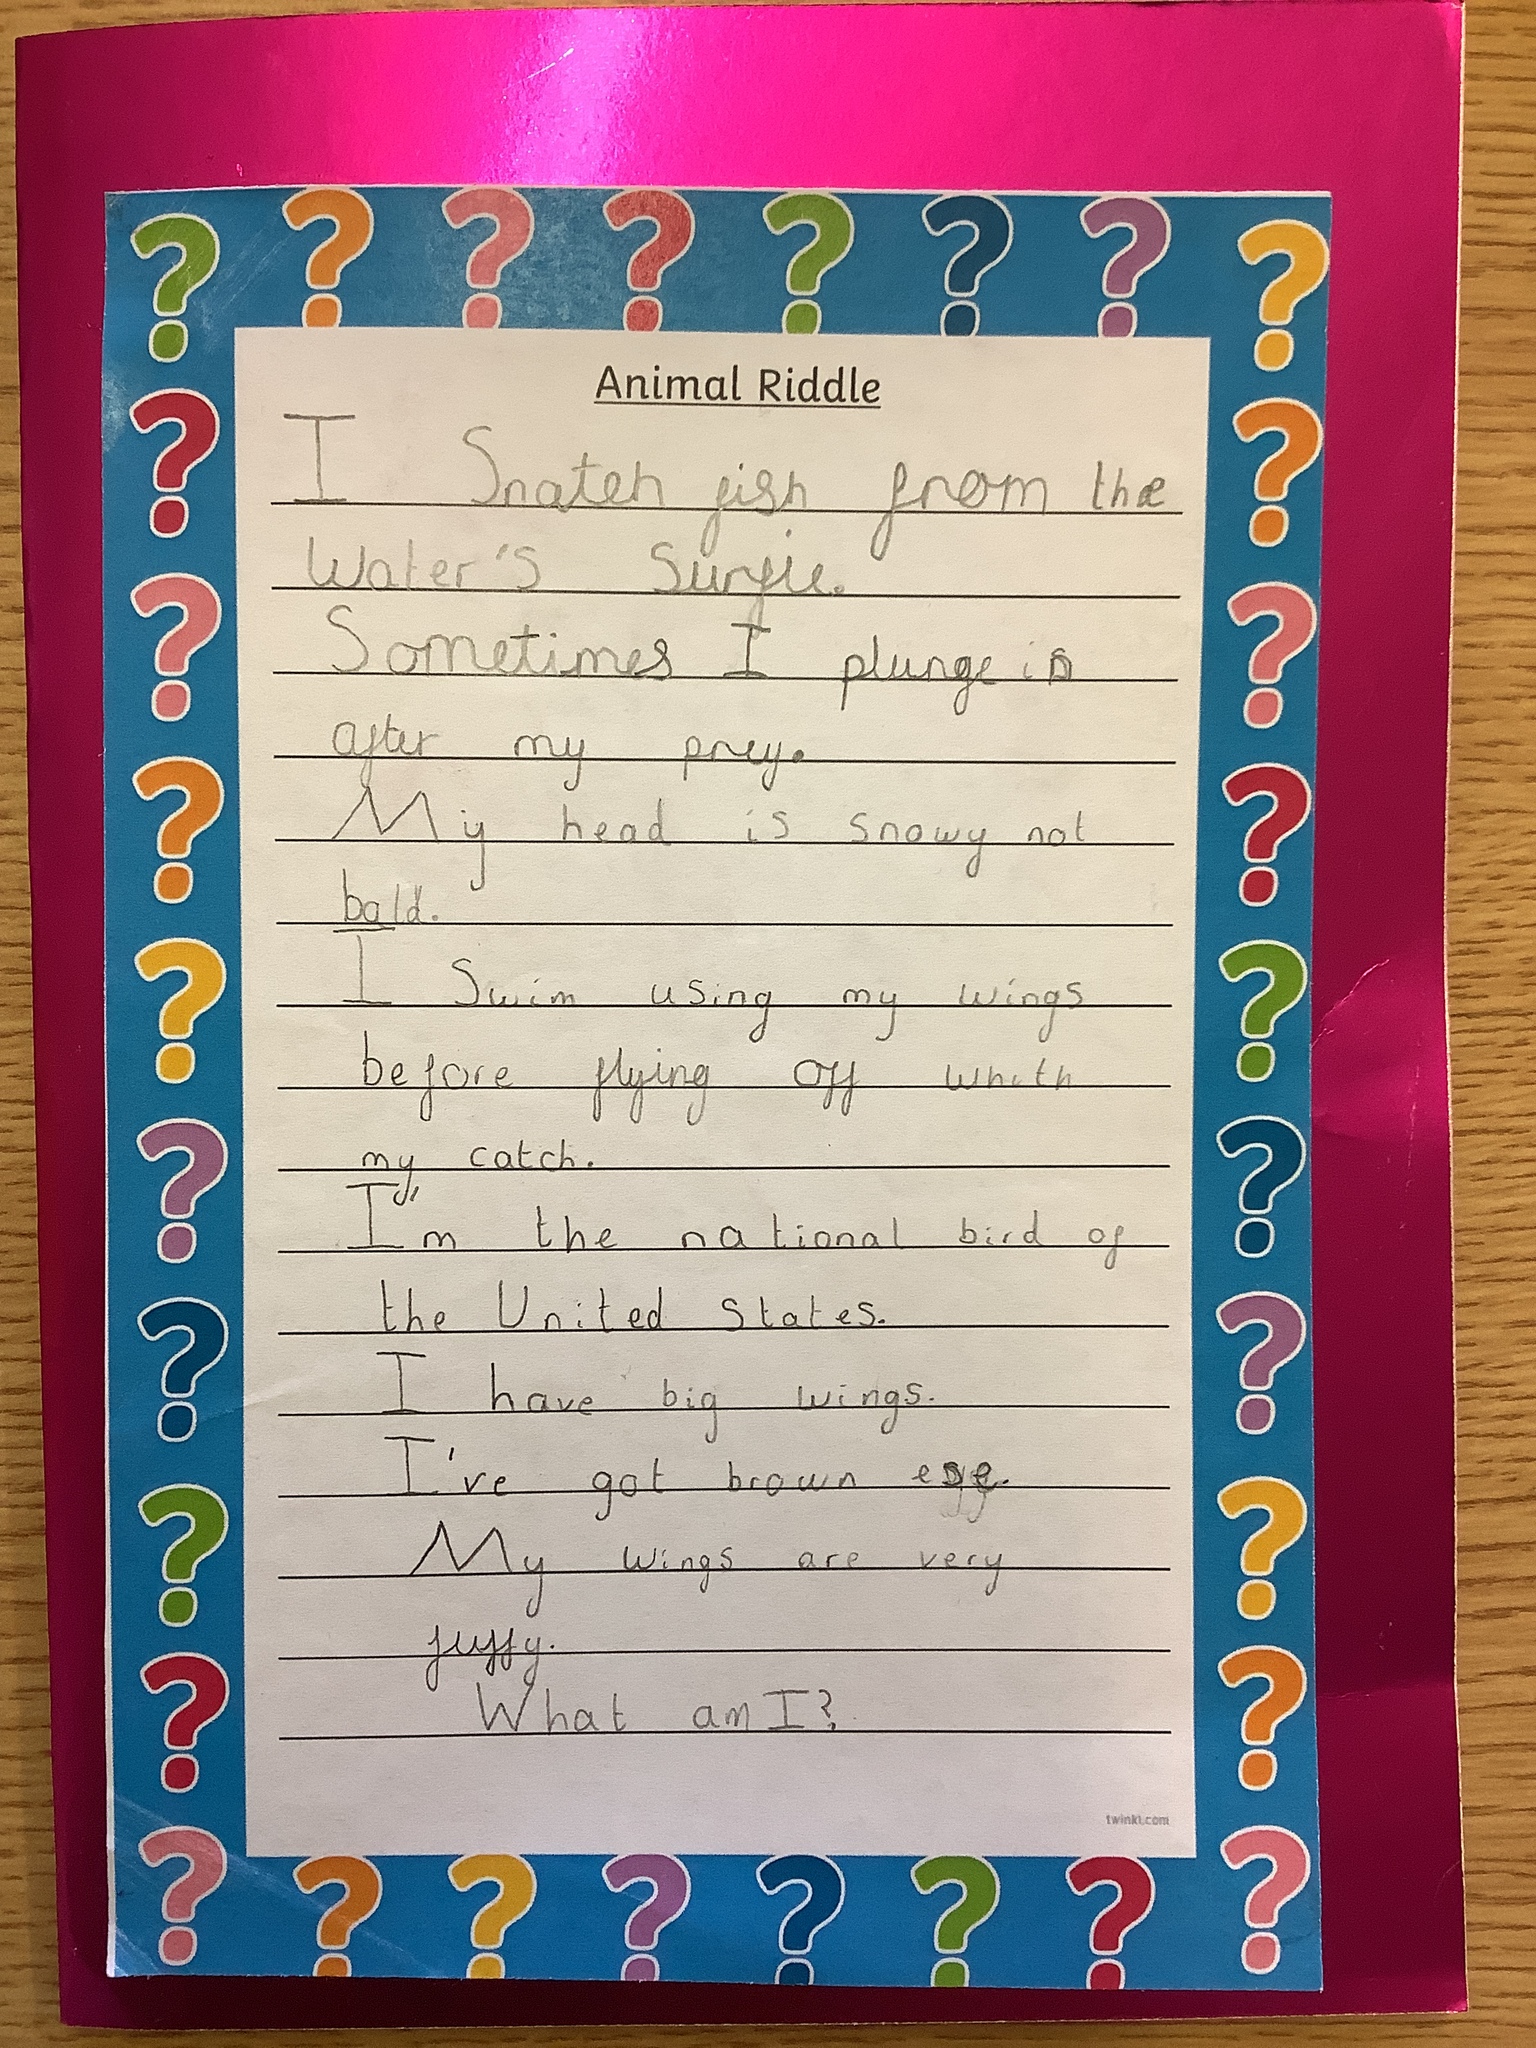 Animal Riddle
I Snatch fish from the
Water's Surfic.
Sometimes I plunge in
after my prey.
My head is snowy not
bald.
I Swim using my wings
before flying off whith
my catch.
I'm the national bird of
the United States.
I have big wings.
I've got brown eye.
My wings are very
fuffy.
What am I?
twinkl.com